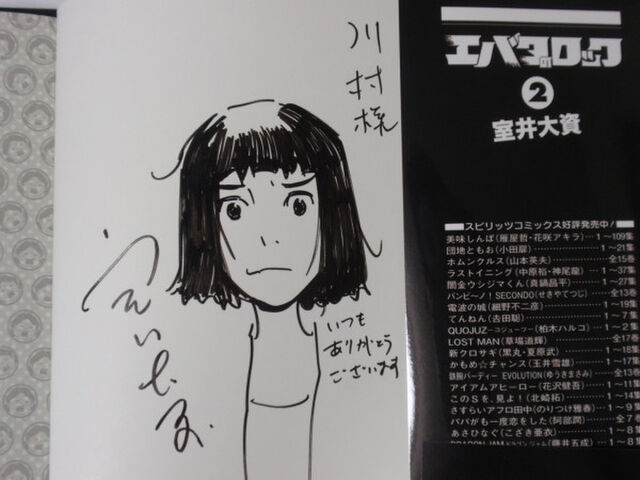 川村様
いつも
ありがとう
ございます
エバタのロック
2
室井大資
■スピリッツコミックス好評発売中!
美味しんぼ(雁屋哲・花咲アキラ)…1〜109集
団地ともお(小田扉)…1〜21集
ホムンクルス(山本英夫)…全15巻
ラストイニング(中原裕・神尾龍)…1〜37集
闇金ウシジマくん(真鍋昌平)…1〜27集
バンビ〜ノ!SECONDO(せきやてつじ)…全13巻
電波の城(細野不二彦)…1〜19集
てんねん(吉田聡)
QUOJUZ-コジューツ-(柏木ハルコ)
LOST MAN(草場道輝)…全17巻
新クロサギ(黒丸・夏原武)…1〜18集
かもめ☆チャンス(玉井雪雄)…1〜17集
鉄腕バーディー EVOLUTION(ゆうきまさみ)…全13巻
アイアムアヒーロー(花沢健吾)
このSを、見よ!(北崎拓)
さすらいアフロ田中(のりつけ雅春)
パパがも一度恋をした(阿部潤)
あさひなぐ(こざき亜衣)